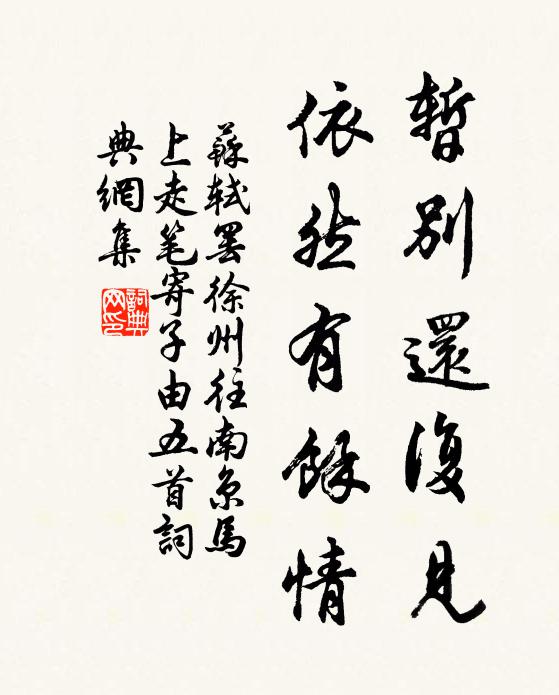 暫別還復見
依然有餘情
蘇軾罢徐州往南京馬
上走笔寄子由五首詞
典網集
詞典
网印